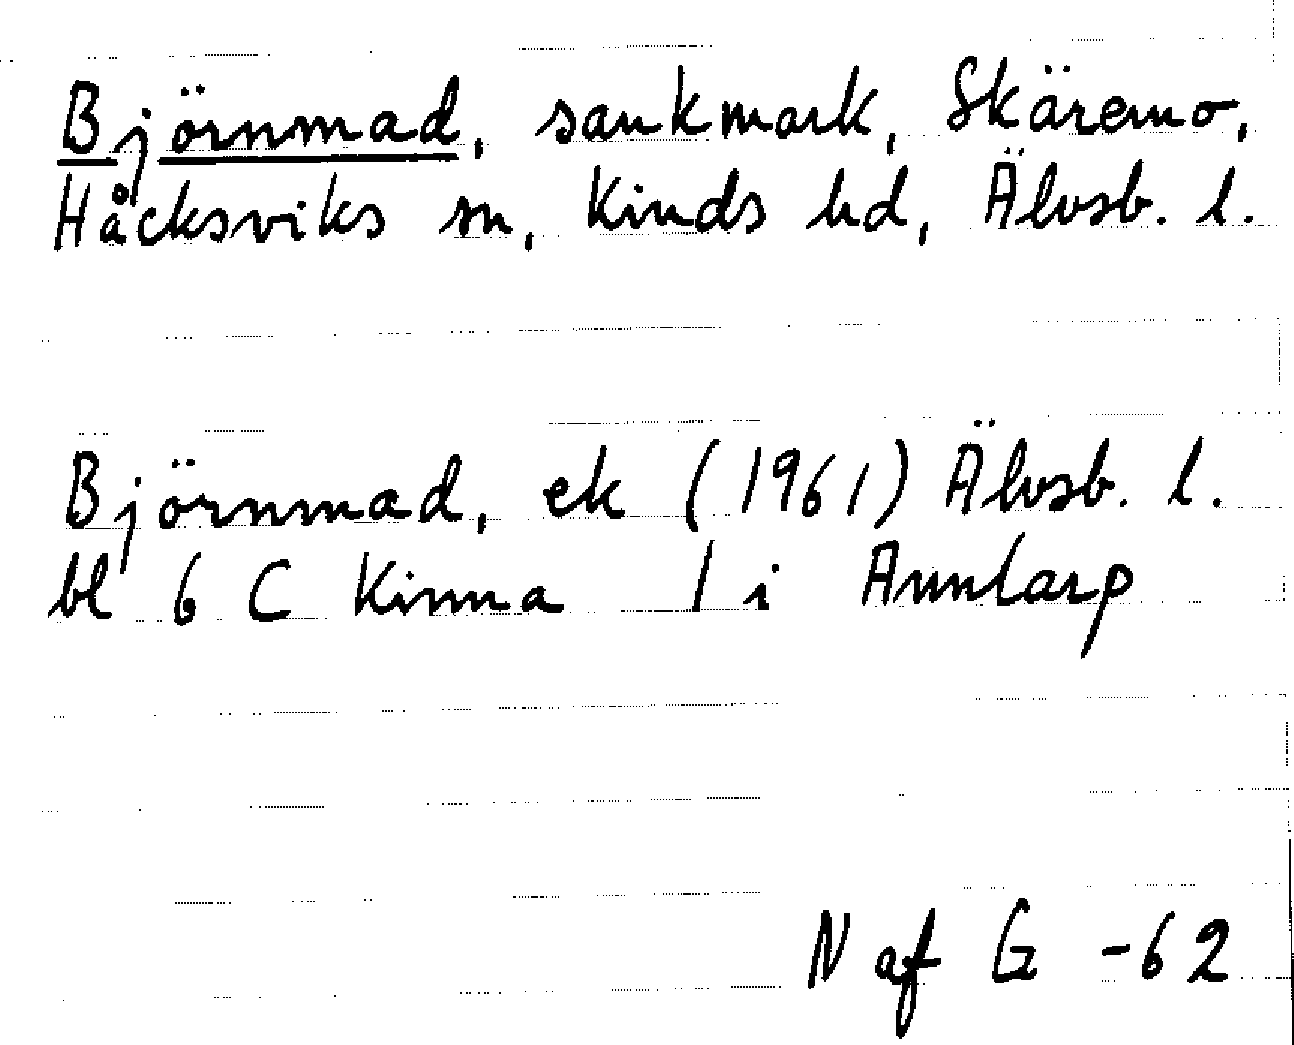 Björnmad, sankmark, Skäremo,
Håcksviks sn, Kinds hd, Älvsb. l.
Björnmad, ek (1961) Älvsb. l.
bl 6 C Kinna l i Annlarp
N af G -62